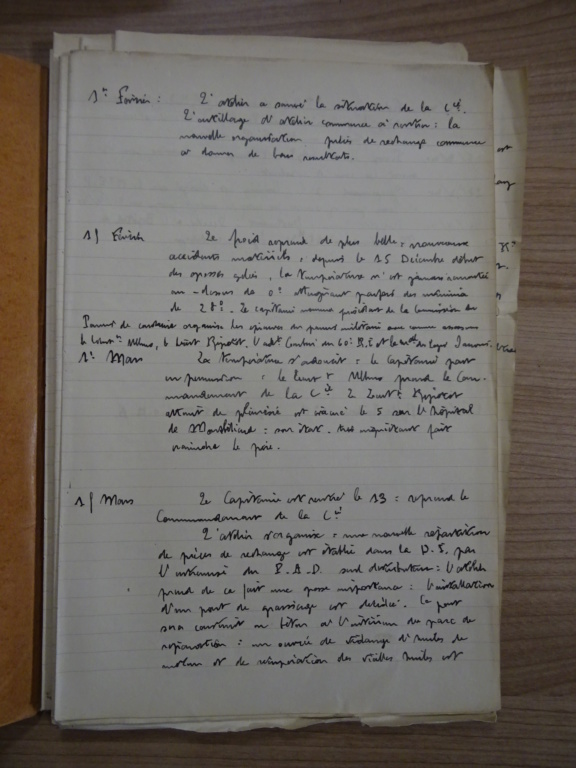 1er Février : L'atelier a sauvé la situation de la Cie.
L'outillage d'atelier commence à rentrer : la
nouvelle organisation pièces de rechange commence
à donner de bons résultats.
15 Février Le froid reprend de plus belle, nombreux
accidents matériels, depuis le 15 Décembre début
des grosses gelées, la température n'est jamais remontée
au-dessus de 0° atteignant parfois des minima
de 28°. Le capitaine nommé président de la Commission du
Permis de conduire organise les épreuves du permis militaire
1er Mars La température s'adoucit : le Capitaine part
en permission : le lieutt prend le Com-
mandement de la Cie Le Lieutt
atteint de pleurésie est évacué le 5 sur l'hôpital
de Montbéliard : son état très inquiétant fait
craindre le pire.
15 Mars Le Capitaine est rentré le 13 : reprend le
Commandement de la Cie
L'atelier s'organise : une nouvelle répartition
de pièces de rechange est établie dans la D.I. par
l'intermédiaire du P.A.D. seul distributeur : l'atelier
prend de ce fait une grosse importance : l'installation
d'un pont de graissage est décidée. Ce pont
sera construit en béton à l'intérieur du parc de
réparation : un service de vidange d'huiles de
moteur et de récupération des vieilles huiles est